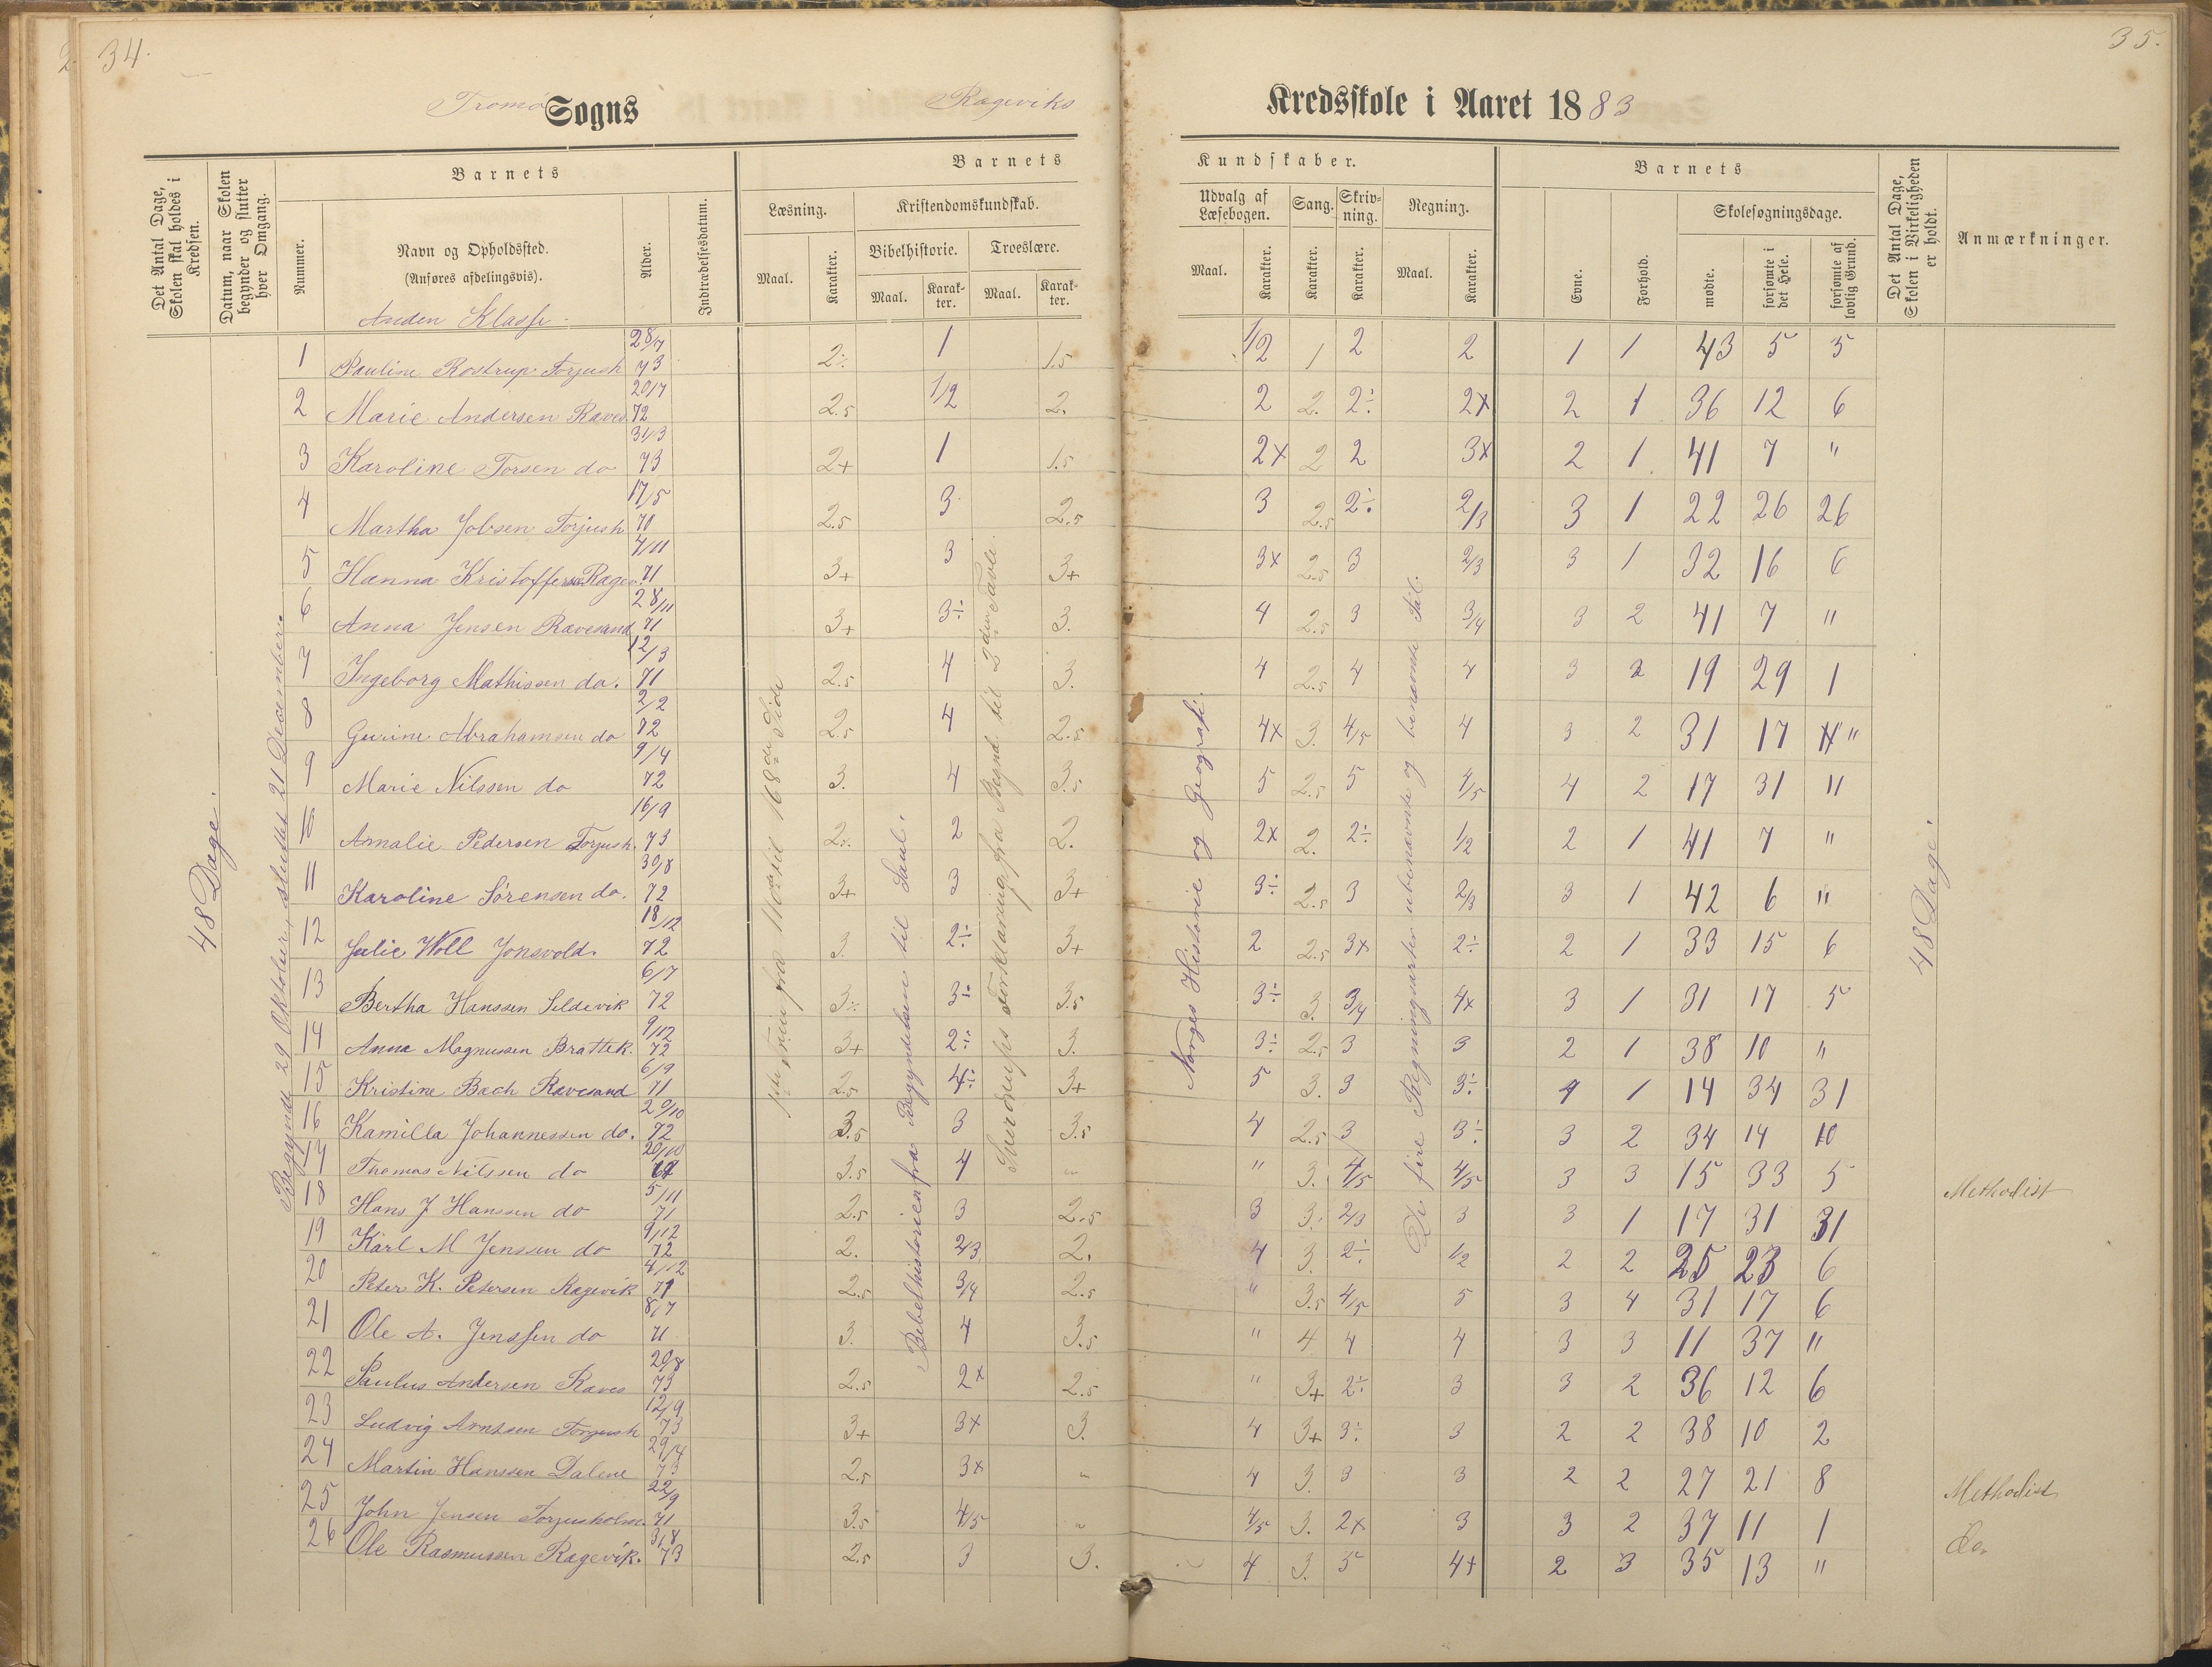 34.
Tromø Sogns Rageviks
Det Antal Dage, Skolen skal holdes i Kredsen.
Datum, naar Skolen begynder og slutter hver Omgang.
Barnets
Nummer.
Navn og Opholdssted.
(Anføres afdelingsvis).
Anden Klasse.
Alder.
Indtrædelsesdatum.
Barnets
Læsning.
Kristendomskundskab.
Bibelhistorie.
Troeslære.
Maal. Karakter. Maal. Karakter. Maal. Karakter.
48 Dage.
Begyndt 29 Oktober, sluttet 21 December.
1 Pauline Rostrup Torjush 28/7 73 2÷ 1 1.5
2 Marie Andersen Raves. 20/7 72 2.5 1/2 2.
3 Karoline Torsen do 31/3 73 2+ 1 1.5
4 Martha Jobsen Torjush 17/5 70 2.5 3 2.5
5 Hanna Kristoffersen Ragev. 4/11 71 3+ 3 3+
6 Anna Jensen Ravesand 28/11 71 3+ 3÷ 3.
7 Ingeborg Mathissen do. 12/3 71 2.5 4 3.
8 Gurine Abrahamsen do 2/2 72 2.5 4 2.5
9 Marie Nilssen do 9/4 72 3. 4 3.5
10 Amalie Pedersen Torjush. 16/9 73 2÷ 2 2.
11 Karoline Sørensen do. 30/8 72 3+ 3 3+
12 Julie Woll Jonsvold. 18/12 72 3. 2÷ 3+
13 Bertha Hanssen Sildevik 6/7 72 3÷ 3÷ 3.5
14 Anna Magnussen Brattek. 9/12 72 3+ 2÷ 3.
15 Kristine Bach Ravesand 6/9 71 2.5 4÷ 3+
16 Kamilla Johannessen do. 29/10 72 3.5 3 3.5
17 Thomas Nilssen do 20/10 3.5 4 "
18 Hans J Hanssen do 5/11 71 2.5 3 2.5
19 Karl M Jenssen do 9/12 72 2. 2/3 2.
20 Peter K. Petersen Ragevik 4/12 71 2.5 3/4 2.5
21 Ole A. Jenssen do 8/7 71 3. 4 3.5
22 Paulus Andersen Raves 20/8 73 2.5 2x 2.5
23 Ludvig Arntsen Torjush 12/9 73 3+ 3x 3.
24 Martin Hanssen Dalene 29/4 73 2.5 3x "
25 John Jensen Torjusholm. 22/9 71 3.5 4/5 "
26 Ole Rasmussen Ragevik. 31/8 73 2.5 3 3.
fra 110de til 168de Side
Bibelhistorien fra Begyndelsen til Saul.
Sverdrups Forklaring fra Begynd. til 2den Tavle.
35.
Kredsskole i Aaret 1883
Kundskaber.
Udvalg af Læsebogen. Sang. Skrivning. Regning.
Maal. Karakter. Karakter. Karakter. Maal. Karakter.
Barnets
Evne. Forhold.
Skolesøgningsdage.
mødte. forsømte i det Hele. forsømte af lovlig Grund.
Det Antal Dage, Skolen i Virkeligheden er holdt.
Anmærkninger.
Norges Historie og Geografi.
De fire Regningsarter ubenævnte og benævnte Tal.
48 Dage.
1/2 1 2 2 1 1 43 5 5
2 2. 2÷ 2x 2 1 36 12 6
2x 2 2 3x 2 1 41 7 "
3 2.5 2÷ 2/3 3 1 22 26 26
3x 2.5 3 2/3 3 1 32 16 6
4 2.5 3 3/4 3 2 41 7 "
4 2.5 4 4 3 2 19 29 1
4x 3. 4/5 4 3 2 31 17 "
5 2.5 5 4/5 4 2 17 31 11
2x 2. 2÷ 1/2 2 1 41 7 "
3÷ 2.5 3 2/3 3 1 42 6 "
2 2.5 3x 2÷ 2 1 33 15 6
3÷ 3. 3/4 4x 3 1 31 17 5
3÷ 2.5 3 3 2 1 38 10 "
5 3. 3 3÷ 4 1 14 34 31
4 2.5 3 3÷ 3 2 34 14 10
" 3. 4/5 4/5 3 3 15 33 5 Methodist
3 3. 2/3 3 3 1 17 31 31
4 3. 2÷ 1/2 2 2 25 23 6
" 3.5 4/5 5 3 4 31 17 6
" 4 4 4 3 3 11 37 "
" 3+ 2÷ 3 3 2 36 12 6
4 3+ 3÷ 3 2 2 38 10 2
4 3. 3 3 2 2 27 21 8 Methodist
4/5 3. 2x 3 3 2 37 11 1 Do.
4 3. 5 4+ 2 3 35 13 "